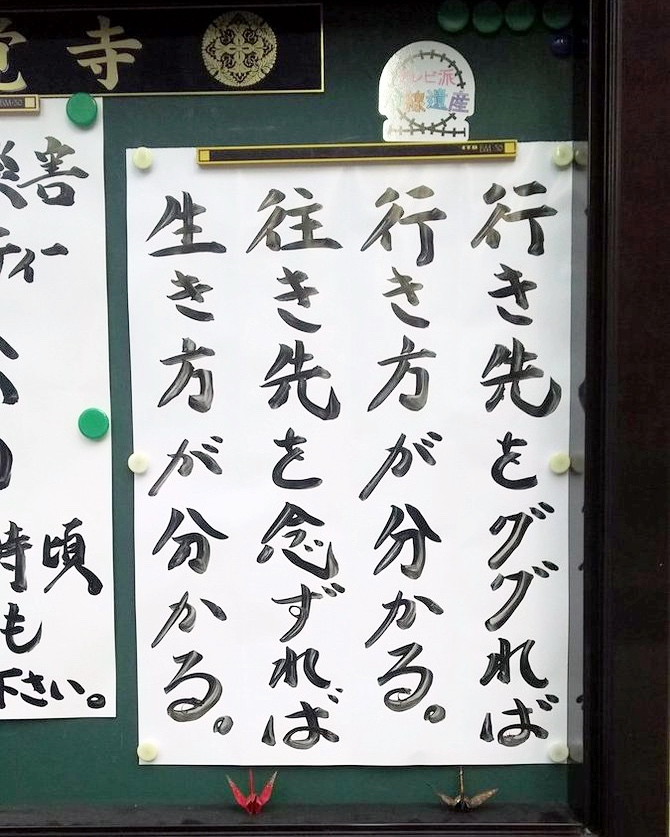 行き先をググれば
行き方が分かる。
往き先を念ずれば
生き方が分かる。
寺
テレビ派
遺産
害
ティー
時頃
も
下さい。